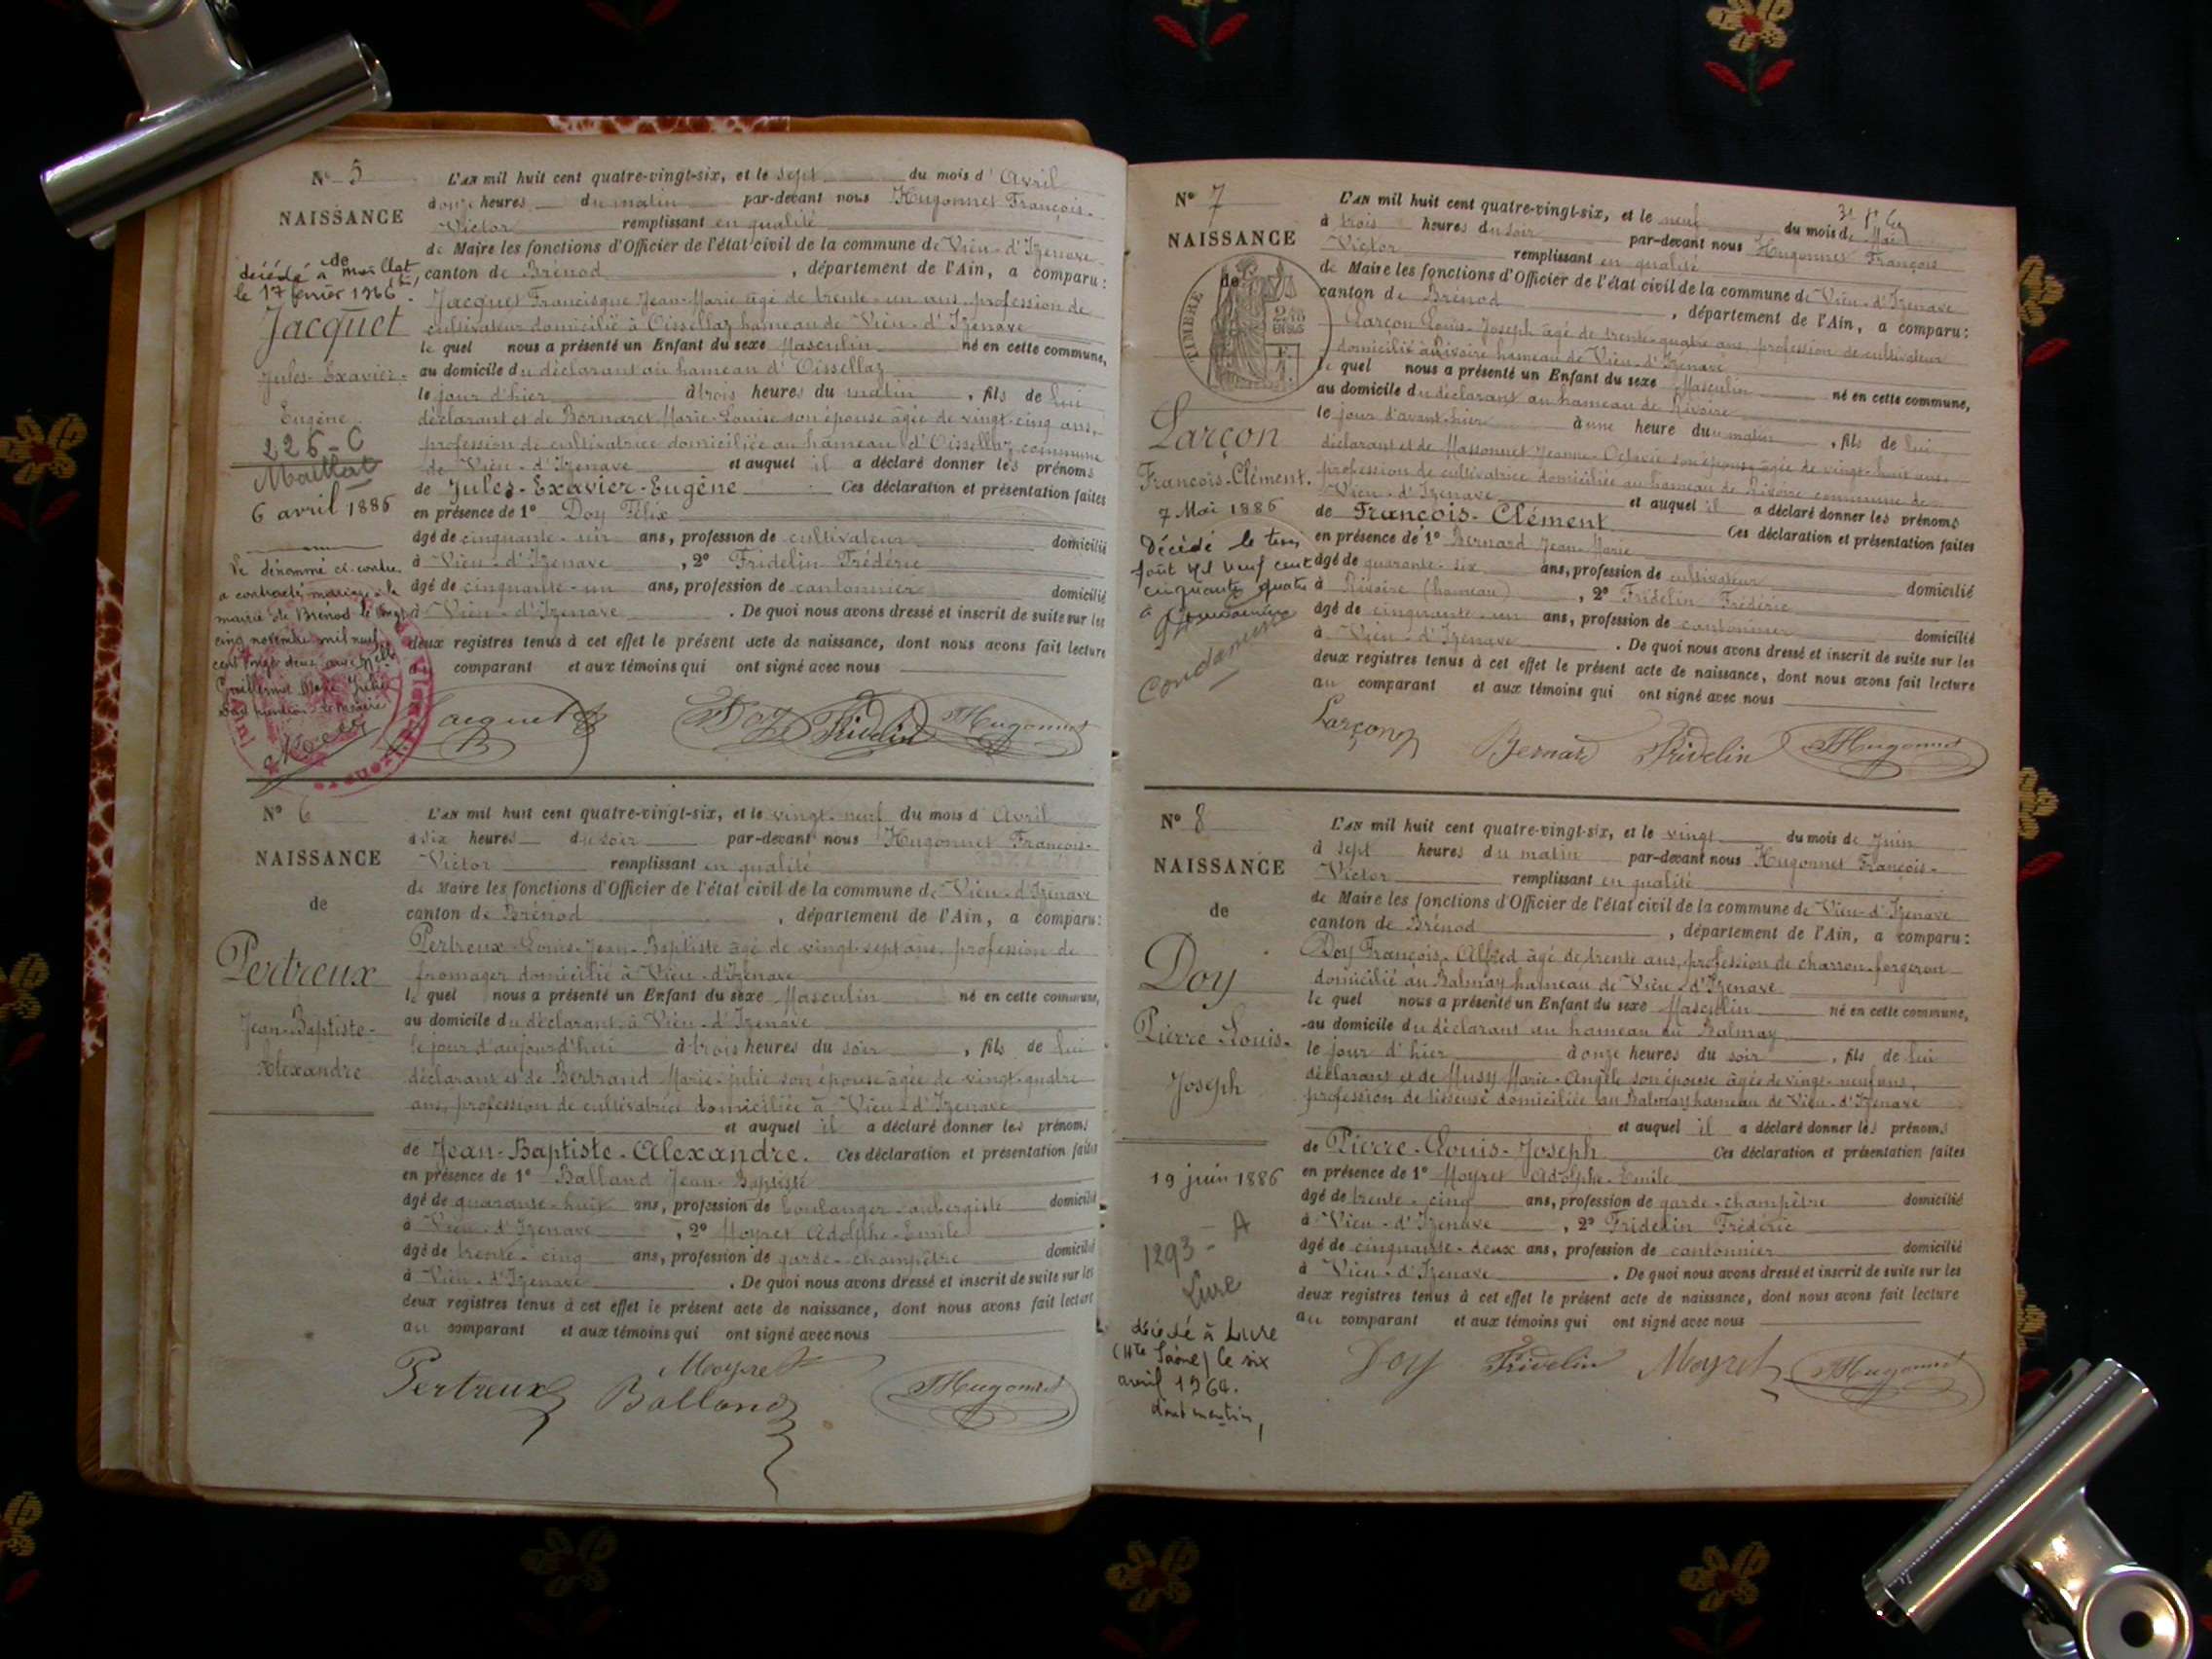 N° 5
NAISSANCE
de
décédé à Maillat
le 17 février 1966
Jacquet
Jules-Exavier-
Eugène
226-C
Maillat
6 avril 1886
Le dénommé ci-contre
a contracté mariage à la
mairie de Brénod le vingt
cinq novembre mil neuf
cent vingt deux avec Melle
L'AN mil huit cent quatre-vingt-six, et le sept du mois d'Avril
à onze heures du matin par-devant nous Hugonnet François-
Victor remplissant en qualité
de Maire les fonctions d'Officier de l'état civil de la commune de Vieu-d'Izenave
canton de Brénod, département de l'Ain, a comparu:
Jacquet Francisque Jean-Marie âgé de trente-un ans, profession de
cultivateur domicilié à Oissellaz hameau de Vieu-d'Izenave
le quel nous a présenté un Enfant du sexe Masculin né en cette commune,
au domicile du déclarant au hameau d'Oissellaz
le jour d'hier à trois heures du matin, fils de lui
déclarant et de Bornaret Marie-Louise son épouse âgée de vingt-cinq ans,
profession de cultivatrice domiciliée au hameau d'Oissellaz commune
de Vieu-d'Izenave et auquel il a déclaré donner les prénoms
de Jules-Exavier-Eugène Ces déclaration et présentation faites
en présence de 1° Doy Félix
âgé de cinquante-un ans, profession de cultivateur domicilié
à Vieu-d'Izenave, 2° Fridelin Frédéric
âgé de cinquante-un ans, profession de cantonnier domicilié
à Vieu-d'Izenave. De quoi nous avons dressé et inscrit de suite sur les
deux registres tenus à cet effet le présent acte de naissance, dont nous avons fait lecture
au comparant et aux témoins qui ont signé avec nous
Jacquet Doy Fridelin Hugonnet
N° 6
NAISSANCE
de
Pertreux
Jean-Baptiste-
Alexandre
L'AN mil huit cent quatre-vingt-six, et le vingt-neuf du mois d'Avril
à six heures du soir par-devant nous Hugonnet François-
Victor remplissant en qualité
de Maire les fonctions d'Officier de l'état civil de la commune de Vieu-d'Izenave
canton de Brénod, département de l'Ain, a comparu:
Pertreux Louis-Jean-Baptiste âgé de vingt-sept ans, profession de
fromager domicilié à Vieu-d'Izenave
le quel nous a présenté un Enfant du sexe Masculin né en cette commune,
au domicile du déclarant à Vieu-d'Izenave
le jour d'aujourd'hui à trois heures du soir, fils de lui
déclarant et de Bertrand Marie-Julie son épouse âgée de vingt-quatre
ans, profession de cultivatrice domiciliée à Vieu-d'Izenave
et auquel il a déclaré donner les prénoms
de Jean-Baptiste-Alexandre. Ces déclaration et présentation faites
en présence de 1° Balland Jean-Baptiste
âgé de quarante-huit ans, profession de boulanger-aubergiste domicilié
à Vieu-d'Izenave, 2° Moyret Adolphe-Emile
âgé de trente-cinq ans, profession de garde-champêtre domicilié
à Vieu-d'Izenave. De quoi nous avons dressé et inscrit de suite sur les
deux registres tenus à cet effet le présent acte de naissance, dont nous avons fait lecture
au comparant et aux témoins qui ont signé avec nous
Pertreux Balland Moyret Hugonnet
N° 7
NAISSANCE
de
TIMBRE
Larçon
François-Clément.
7 Mai 1886
Décédé le trois
août mil neuf cent
cinquante quatre
à
Condamine
L'AN mil huit cent quatre-vingt-six, et le neuf du mois de Mai
à trois heures du soir par-devant nous Hugonnet François
Victor remplissant en qualité
de Maire les fonctions d'Officier de l'état civil de la commune de Vieu-d'Izenave
canton de Brénod, département de l'Ain, a comparu:
Larçon Louis-Joseph âgé de trente-quatre ans, profession de cultivateur
domicilié à Rivoire hameau de Vieu-d'Izenave
le quel nous a présenté un Enfant du sexe Masculin né en cette commune,
au domicile du déclarant au hameau de Rivoire
le jour d'avant-hier à une heure du matin, fils de lui
déclarant et de Massonnet Jeanne-Octavie son épouse âgée de vingt-huit ans,
profession de cultivatrice domiciliée au hameau de Rivoire commune de
Vieu-d'Izenave et auquel il a déclaré donner les prénoms
de François-Clément Ces déclaration et présentation faites
en présence de 1° Bernard Jean-Marie
âgé de quarante-six ans, profession de cultivateur domicilié
à Rivoire (hameau), 2° Fridelin Frédéric
âgé de cinquante-un ans, profession de cantonnier domicilié
à Vieu-d'Izenave. De quoi nous avons dressé et inscrit de suite sur les
deux registres tenus à cet effet le présent acte de naissance, dont nous avons fait lecture
au comparant et aux témoins qui ont signé avec nous
Larçon Bernard Fridelin Hugonnet
N° 8
NAISSANCE
de
Doy
Pierre-Louis-
Joseph
19 juin 1886
1293-A
Lure
décédé à Lure
(Hte Saône) le six
avril 1964.
dont mention,
L'AN mil huit cent quatre-vingt-six, et le vingt du mois de Juin
à sept heures du matin par-devant nous Hugonnet François-
Victor remplissant en qualité
de Maire les fonctions d'Officier de l'état civil de la commune de Vieu-d'Izenave
canton de Brénod, département de l'Ain, a comparu:
Doy François-Alfred âgé de trente ans, profession de charron-forgeron
domicilié au Balmay hameau de Vieu-d'Izenave
le quel nous a présenté un Enfant du sexe Masculin né en cette commune,
au domicile du déclarant au hameau du Balmay
le jour d'hier à onze heures du soir, fils de lui
déclarant et de Musy Marie-Angèle son épouse âgée de vingt-neuf ans,
profession de tisseuse domiciliée au Balmay hameau de Vieu-d'Izenave
et auquel il a déclaré donner les prénoms
de Pierre-Louis-Joseph Ces déclaration et présentation faites
en présence de 1° Moyret Adolphe-Emile
âgé de trente-cinq ans, profession de garde-champêtre domicilié
à Vieu-d'Izenave, 2° Fridelin Frédéric
âgé de cinquante-deux ans, profession de cantonnier domicilié
à Vieu-d'Izenave. De quoi nous avons dressé et inscrit de suite sur les
deux registres tenus à cet effet le présent acte de naissance, dont nous avons fait lecture
au comparant et aux témoins qui ont signé avec nous
Doy Fridelin Moyret Hugonnet